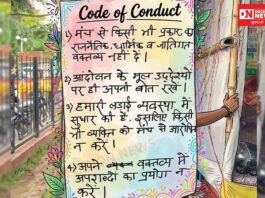 Code of Conduct
1) मंच से किसी भी प्रकार का
राजनैतिक, धार्मिक व जातिगत
वक्तव्य नहीं दें।
2) आंदोलन के मूल उद्देश्यों
पर ही अपनी बात रखें।
3) हमारी लड़ाई व्यवस्था में
सुधार की है, इसलिए किसी
भी व्यक्ति को मंच से
न करें।
4) अपने वक्तव्य में
अपशब्दों का प्रयोग न
करें।
NEWS